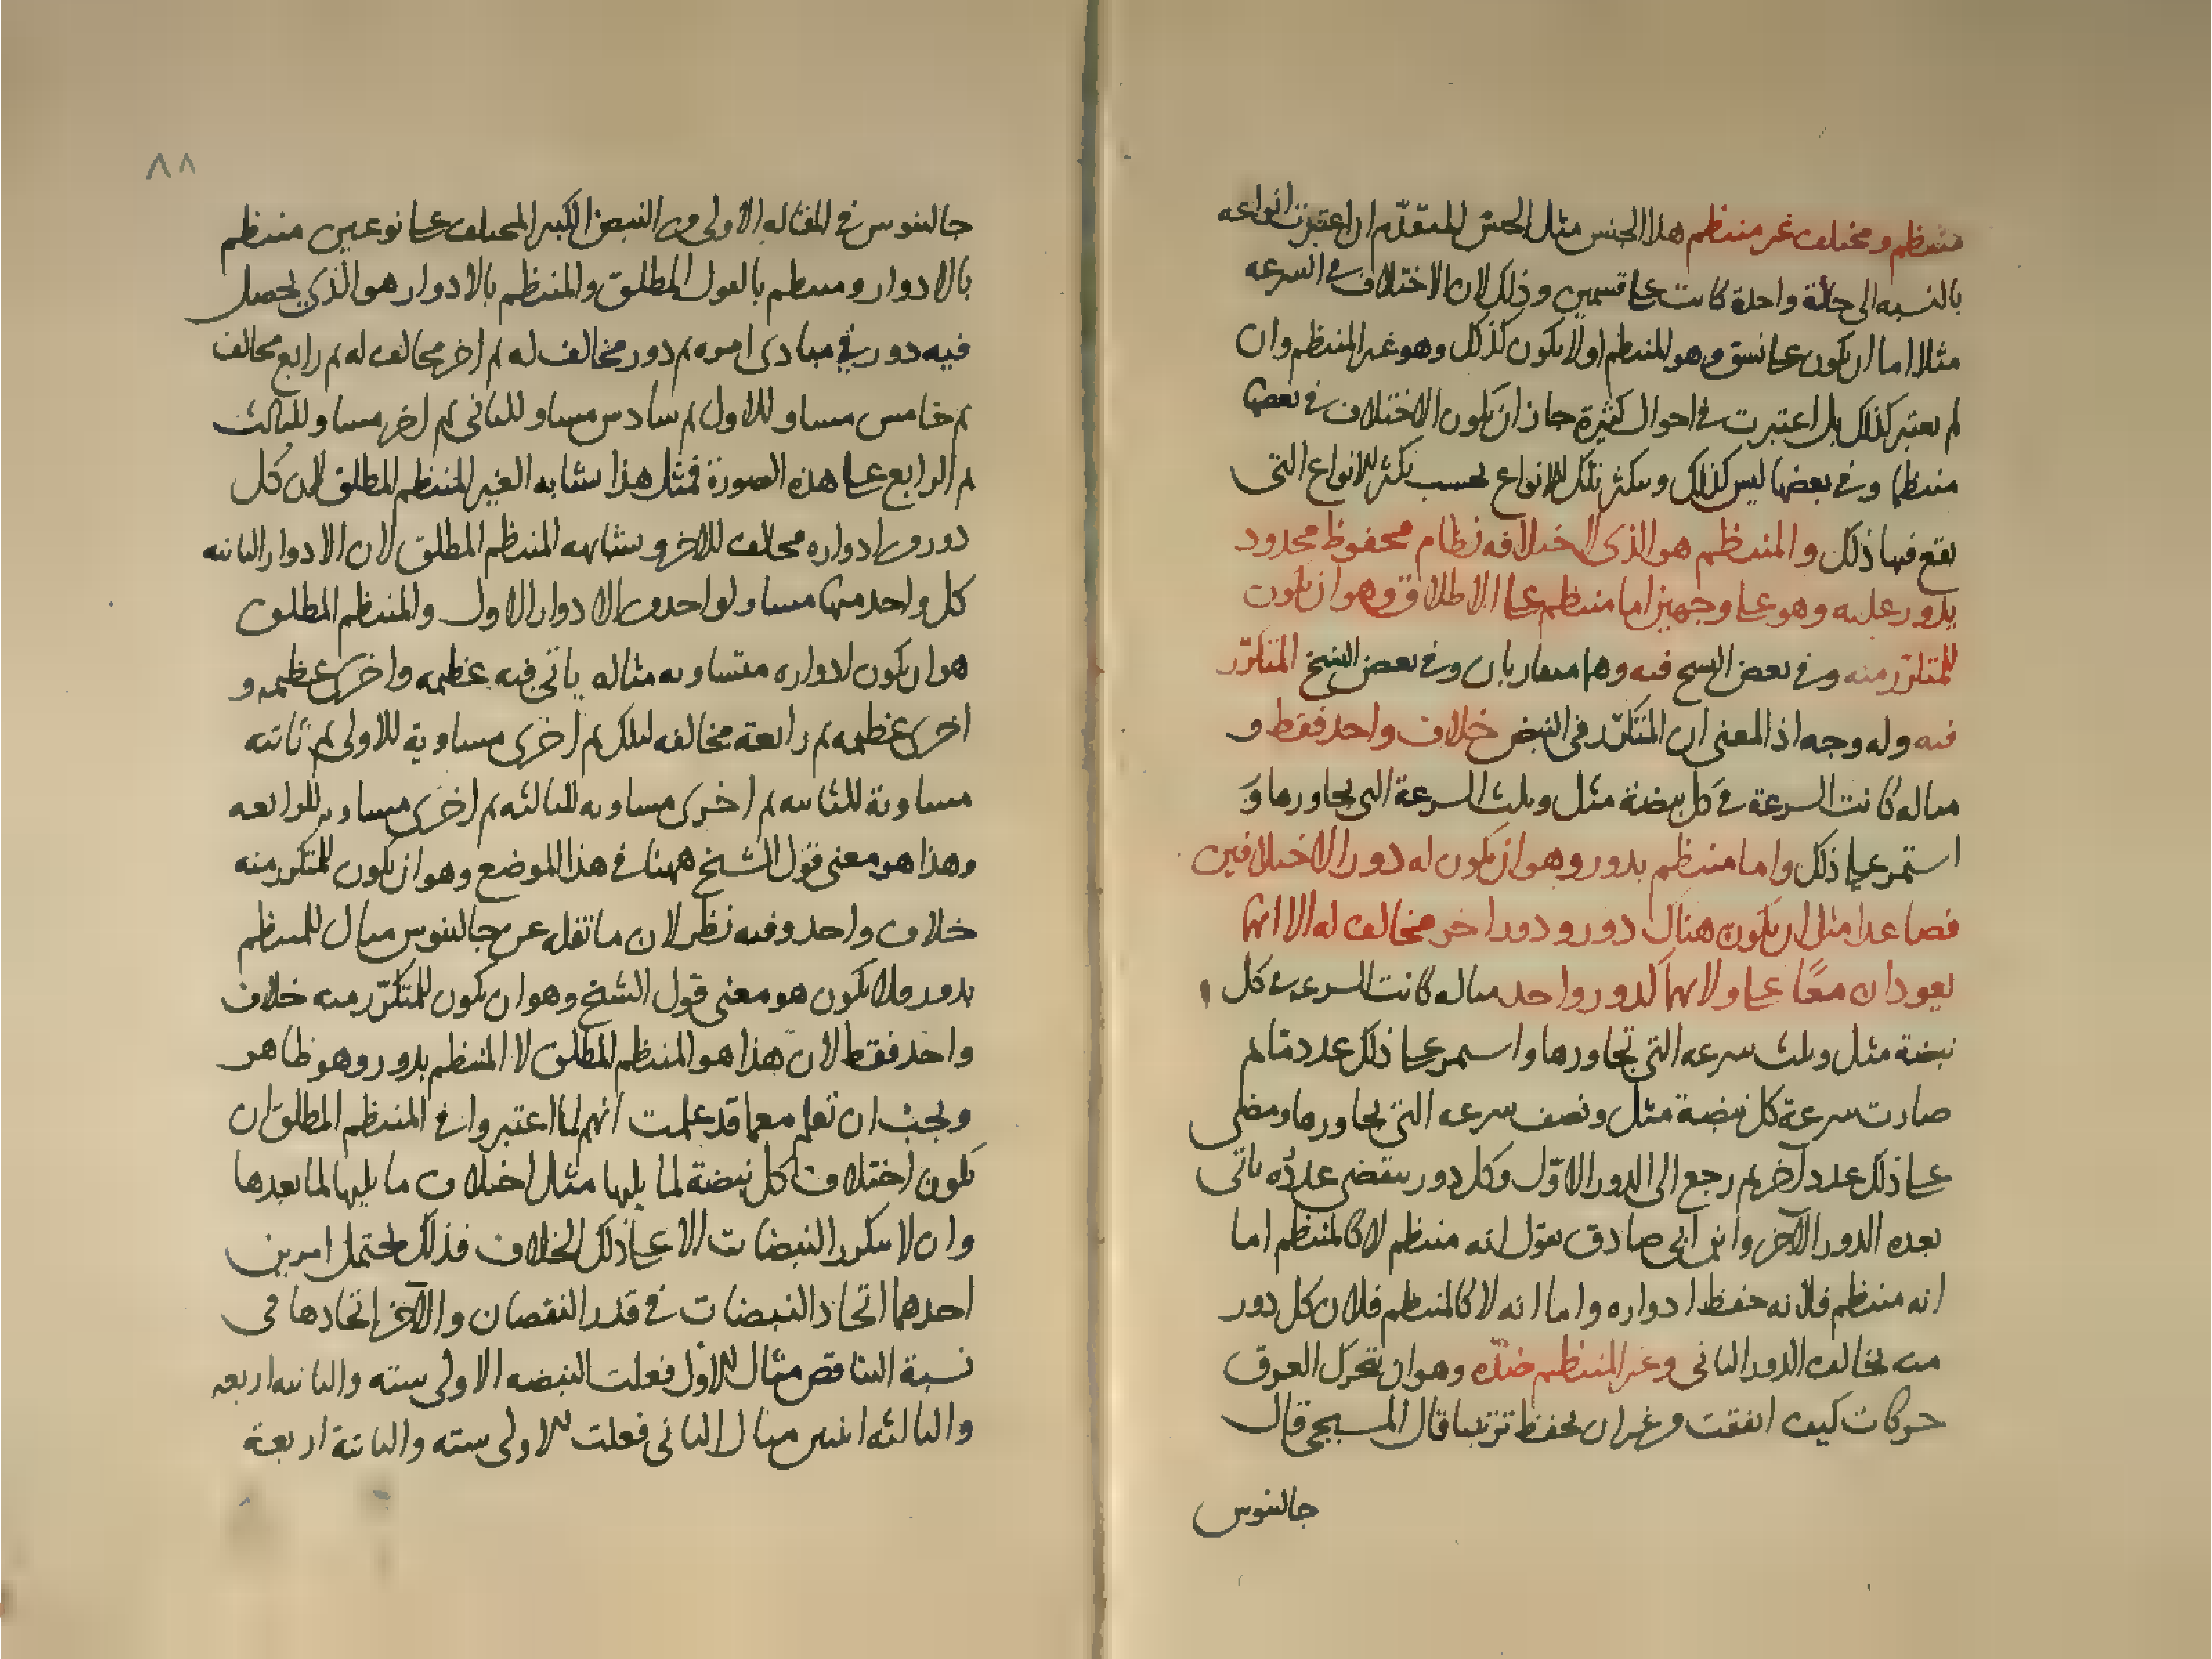 منتظم ومختلف غير منتظم هذا الجنس مثال الجنس المتقدّم ان اعتبرت انواعه
بالنسبه الى حالة واحدة كانت على قسمين وذلك لان الاختلاف في السرعه
مثلا اما ان يكون على نسق وهو المنتظم او لا يكون كذلك وهو غير المنتظم وان
لم يعتبر كذلك بل اعتبرت في احوال كثيرة جاز ان يكون الاختلاف في بعضها
منتظما وفي بعضها ليس كذلك وتتكثر تلك الانواع بحسب تكثر الانواع التي
يقع فيها ذلك والمنتظم هو الذي لاختلافه نظام محفوظ محدود
يدور عليه وهو على وجهين اما منتظم على الاطلاق وهو ان يكون
المتكرّر منه وفي بعض النسخ فيه وهما متقاربان وفي بعض النسخ المتكرّر
فيه وله وجه اذ المعنى ان المتكرّر في النبض خلاف واحد فقط و
مثاله كانت السرعة في كل نبضة مثل وثلث السرعة التي تجاورها و
استمر على ذلك واما منتظم بدور وهو ان يكون له دور الاختلافين
فصاعدا مثل ان يكون هناك دور ودور اخر مخالف له الا انهما
يعودان معًا على ولائهما كدور واحد مثاله كانت السرعه في كل
نبضة مثل وثلث سرعه التي تجاورها واستمر على ذلك عدد ما ثم
صارت سرعة كل نبضة مثل ونصف سرعه التي تجاورها ومضى
على ذلك عدد آخر ثم رجع الى الدور الاوّل وكل دور ينقضي عدده ياتي
بعده الدور الآخر وابن ابي صادق يقول انه منتظم لا كالمنتظم اما
انه منتظم فلانه حفظ ادواره واما انه لا كالمنتظم فلان كل دور
منه يخالف الدور الثاني وغير المنتظم ضدّه وهو ان تتحرك العروق
حركات كيف اتفقت من غير ان تحفظ ترتيبا قال المسيحي قال
جالينوس
٨٨
جالينوس في المقاله الاولى من النبض الكبير المختلف على نوعين منتظم
بالادوار ومنتظم بالقول المطلق والمنتظم بالادوار هو الذي يحصل
فيه دور في مبادى امره ثم دور مخالف له ثم اخر مخالف له ثم رابع مخالف
ثم خامس مساو للاول ثم سادس مساو للثاني ثم اخر مساو للثالث
ثم الرابع على هذه الصورة فمثل هذا يشابه الغير المنتظم المطلق لان كل
دور من ادواره مخالف للاخر ويشابهه المنتظم المطلق لان الادوار الثانيه
كل واحد منها مساو لواحد من الادوار الاول والمنتظم المطلق
هو ان يكون ادواره متساويه مثاله ياتي فيه عظيمه واخرى عظيمه و
اخرى عظيمه ثم رابعة مخالفه لتلك ثم اخرى مساوية للاولى ثم ثانيه
مساوية للثانيه ثم اخرى مساويه للثالثه ثم اخرى مساويه للرابعه
وهذا هو معنى قول الشيخ ههنا في هذا الموضع وهو ان يكون المتكرر منه
خلاف واحد وفيه نظر لان ما نقله عن جالينوس مثال للمنتظم
بدور فلا يكون هو معنى قول الشيخ وهو ان يكون المتكرّر منه خلاف
واحد فقط لان هذا هو المنتظم المطلق لا المنتظم بدور وهو ظاهر
ويجب ان تعلم معما قد علمت انهم لما اعتبروا في المنتظم المطلق ان
يكون اختلاف كل نبضة لما يليها مثال اختلاف ما يليها لما بعدها
وان لا تتكرر النبضات الا على ذلك الخلاف فذلك يحتمل امرين
احدهما اتحاد النبضات في قدر النقصان والآخر اتحادها في
نسبة التناقص مثال الاول فعلت النبضه الاولى سته والثانيه اربعه
والثالثه اثنين مثال الثاني فعلت الاولى سته والثانية اربعة